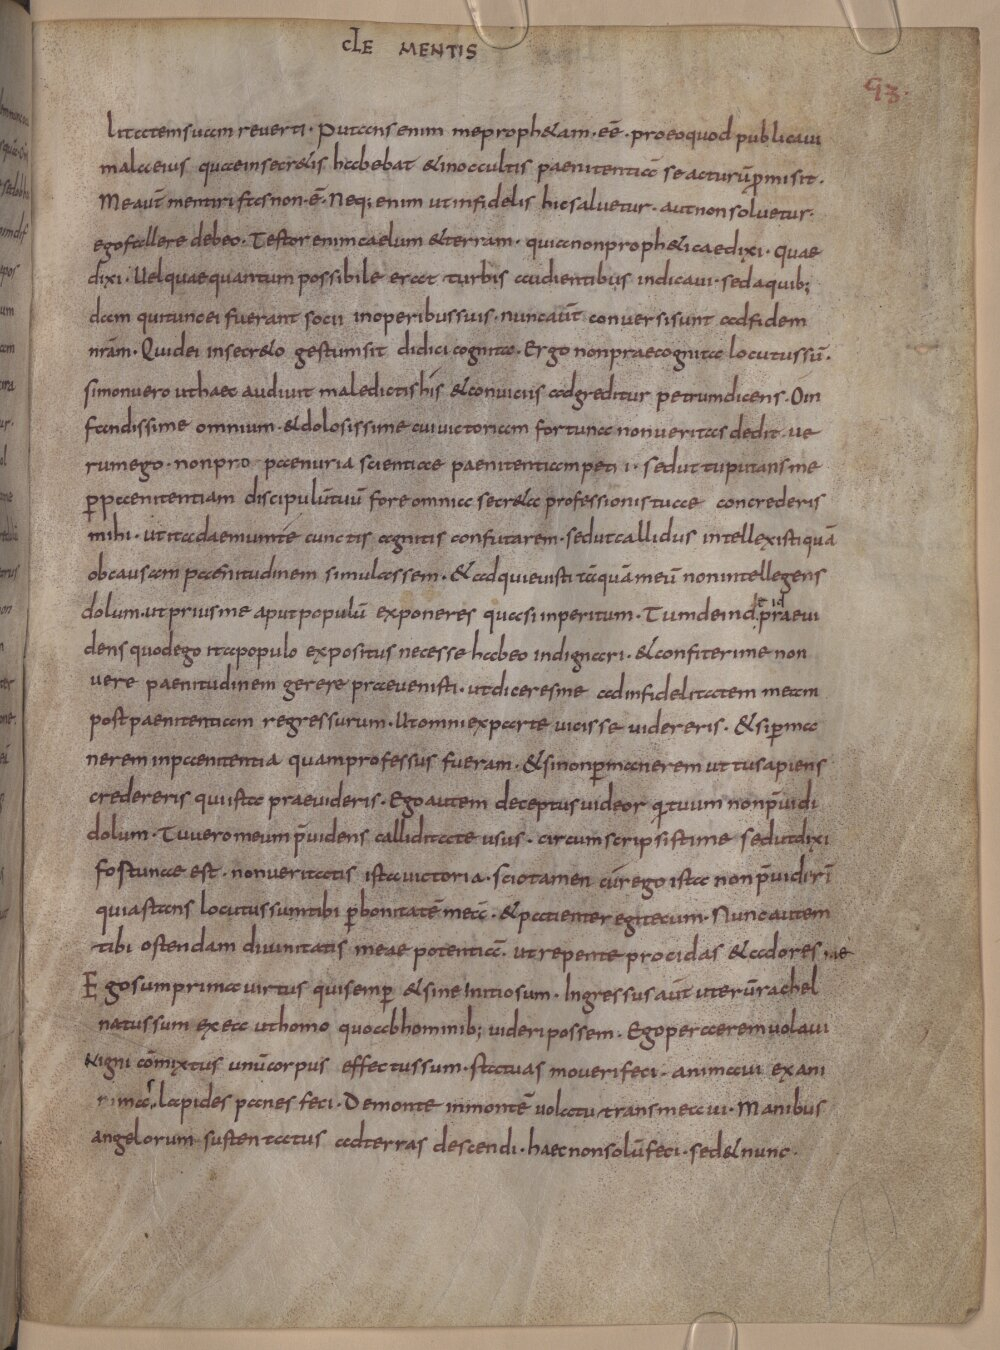 CLE MENTIS
93.
litatem suam reverti · Putans enim me prophetam · eē · pro eo quod publicavi
mala eius quae in secretis habebat et in occultis paenitentiā se acturū p̄misit ·
Me aut̄ mentiri fas non · ē · Neq; enim ut infidelis hic salvetur · aut non solvetur ·
ego fallere debeo · Testor enim caelum et terram · quia non prophetica edixi · quae
dixi · Vel quae quantum possibile erat turbis audientibus indicavi · sed a quib;
dam qui tunc ei fuerant socii in operibus suis · nunc aūt conversi sunt ad fidem
nrām · Qui dei in secreto gestum sit didici cognita · Ergo non praecognita locutus sū ·
simon vero ut haec audivit maledictis his et conviciis adgreditur petrum dicens · O in
fandissime omnium · et dolosissime cui victoriam fortuna non veritas dedit · ve
rum ego · non pro paenuria scientiae paenitentiam peti i · sed ut tu putans me
p̱ paenitentiam discipulū tuū fore omnia secreta professionis tuae concrederis
mihi · ut ita daemum te cunctis agnitis confutarem · sed ut callidus intellexisti quā
ob causam paenitudinem simulassem · et adquievisti tāquā meū non intellegens
dolum · ut prius me aput populū exponeres quasi inperitum · Tum deind p̄raevi
dens quod ego ita populo expositus necesse habeo indignari · et confiteri me non
vere paenitudinem gerere praevenisti · ut diceres me ad infidelitatem meam
post paenitentiam regressurum · Ut omni ex parte vicisse videreris · et si p̱ma
nerem in paenitentia quam professus fueram · et si non p̱manerem ut tu sapiens
credereris qui ista praevideris · Ego autem deceptus videor q̱ tuum non p̄vidi
dolum · Tu vero meum p̄videns calliditate usus · circumscripsisti me sed ut dixi
fostunae est · non veritatis ista victoria · scio tamen cūr ego ista non p̄viderī
quia stans locutus sum tibi p̱ bonitatē meā · et patienter egi tecum · Nunc autem
tibi ostendam divinitatis meae potentiā · ut repente procidas et adores me
Ego sum prima virtus qui semp̱ et sine initio sum · Ingressus aūt uterū rachel
natus sum ex ea ut homo quo ab hominib; videri possem · Ego per aerem volavi
& igni cōmixtus unū corpus effectus sum · statuas moveri feci · animavi ex ani
mā, lapides panes feci · De monte in montē volatu transmeavi · Manibus
angelorum sustentatus ad terras descendi · haec non solū feci · sed et nunc ·